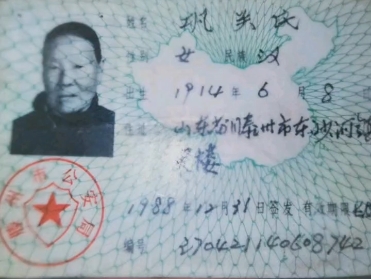 姓名 巩关氏
性别 女 民族 汉
出生 1914年6月8
住址 山东省滕州市东沙河镇
1988年12月31日签发 有效期限
编号 370421140608742
滕州市公安局